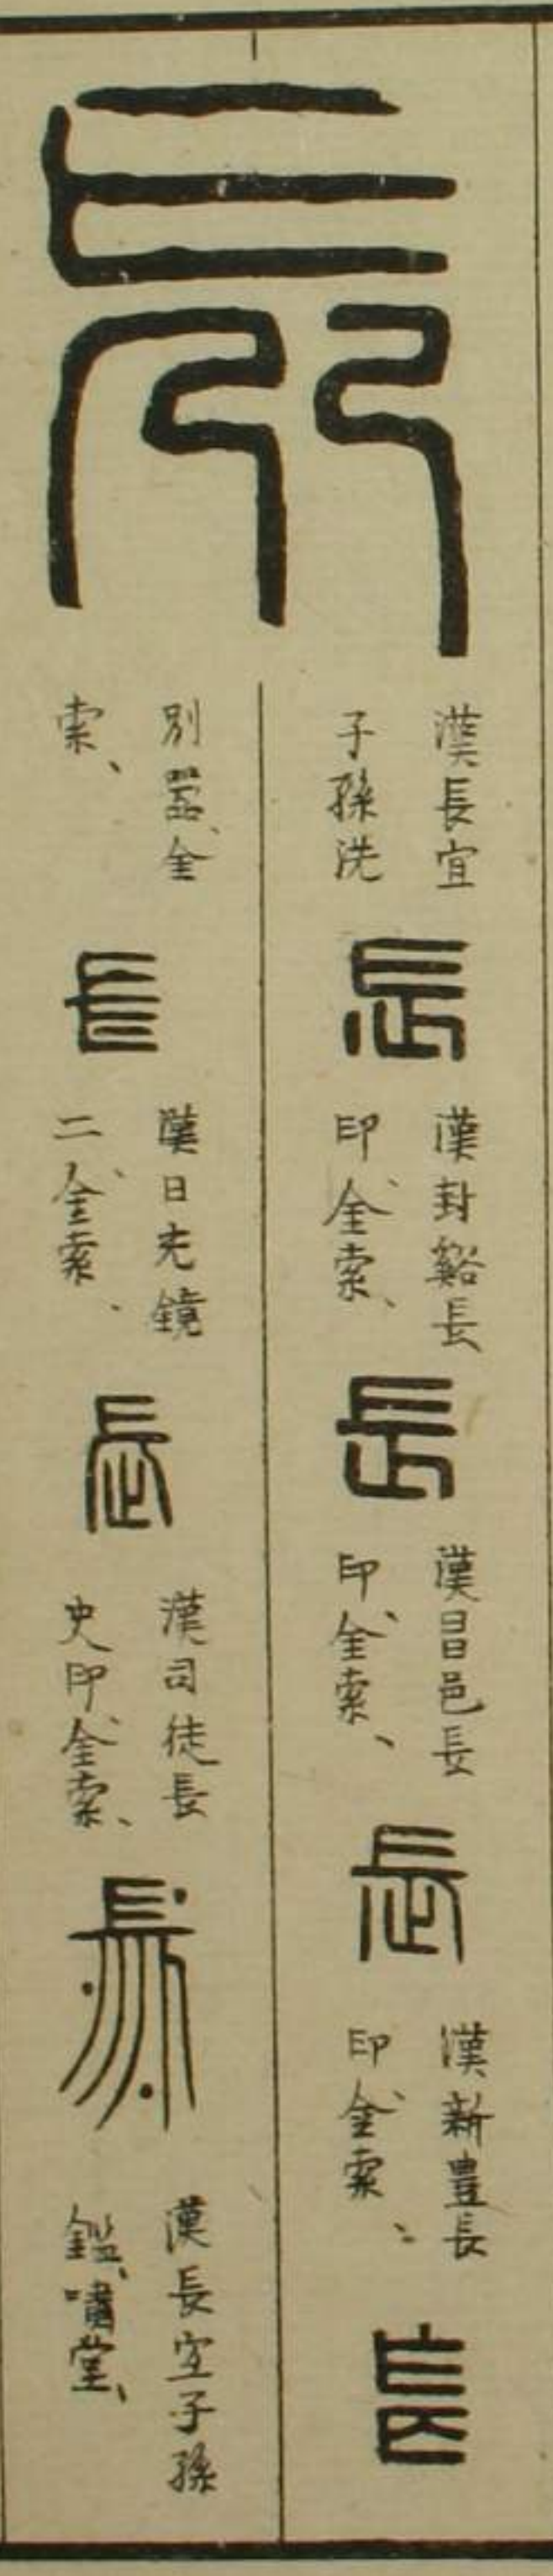 長
漢長宜
子孫洗
長
漢封谿長
印、金索、
長
漢昌邑長
印、金索、
長
漢新豊長
印、金索、
長
別器、金
索、
長
漢日光鏡
二、金索、
長
漢司徒長
史印、金索、
長
漢長宜子孫
鑑、嘯堂、